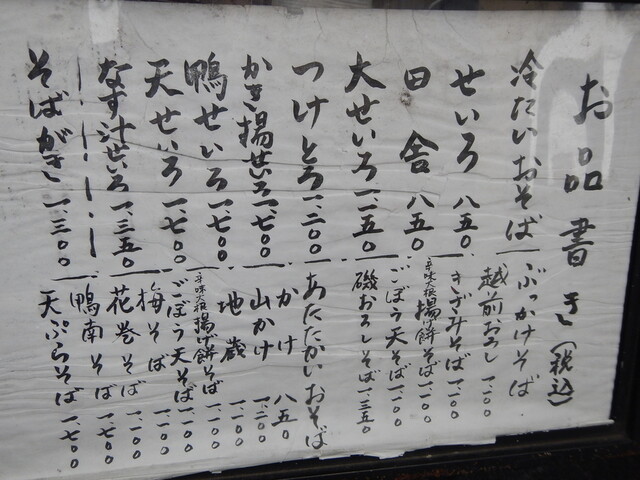 お品書き(税込)
冷たいおそば
せいろ 八五〇
田舎 八五〇
大せいろ 一、一五〇
つけとろ 一、二〇〇
かき揚せいろ 一、七〇〇
鴨せいろ 一、七〇〇
天せいろ 一、七〇〇
なす汁せいろ 一、三五〇
そばがき 一、三〇〇
ぶっかけそば
越前おろし 一、一〇〇
きざみそば 一、一〇〇
辛味大根揚げ餅そば 一、一〇〇
ごぼう天そば 一、一〇〇
磯おろしそば 一、三五〇
あたたかいおそば
かけ 八五〇
山かけ 一、二〇〇
地蔵 一、一〇〇
辛味大根揚げ餅そば 一、一〇〇
ごぼう天そば 一、一〇〇
梅そば 一、一〇〇
花巻そば 一、一〇〇
鴨南そば 一、七〇〇
天ぷらそば 一、七〇〇